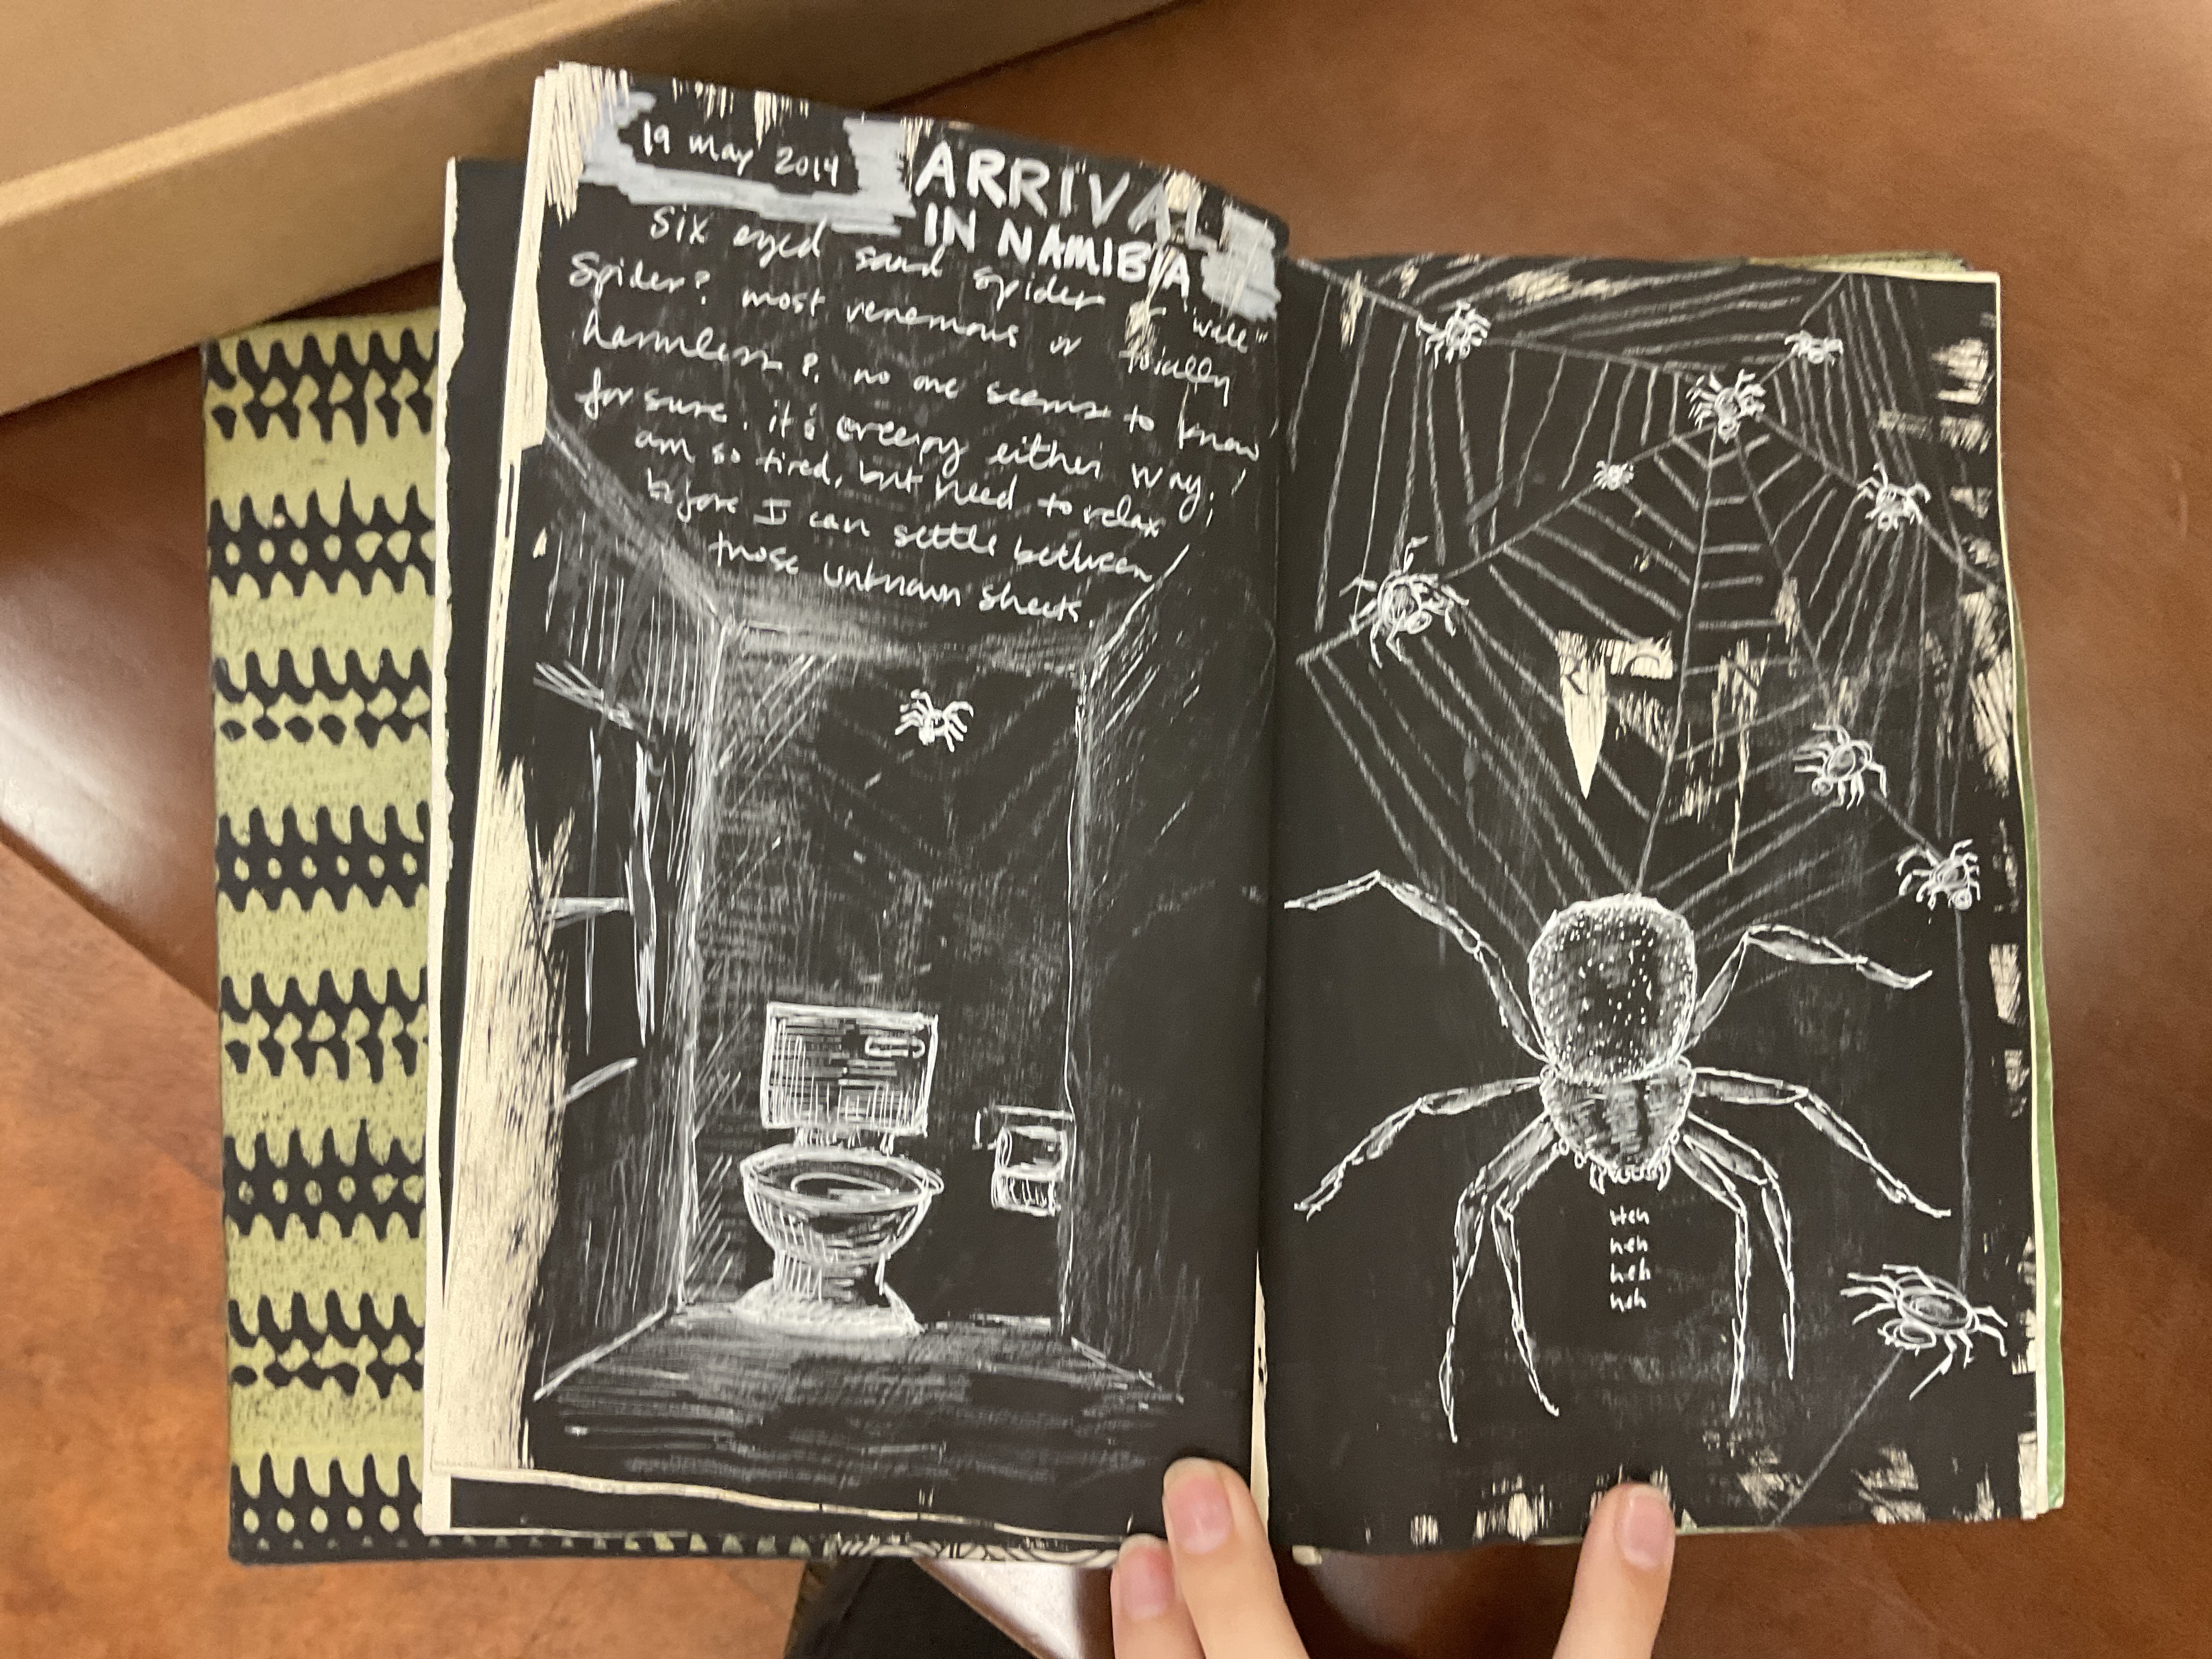 19 may 2014
ARRIVAL
IN NAMIBIA
six eyed sand spider or "wall"
spider? most venemous or totally
harmless?. no one seems to know
for sure. it's creepy either way. i
am so tired, but need to relax
before I can settle between
those unknown sheets.
Heh
heh
heh
heh